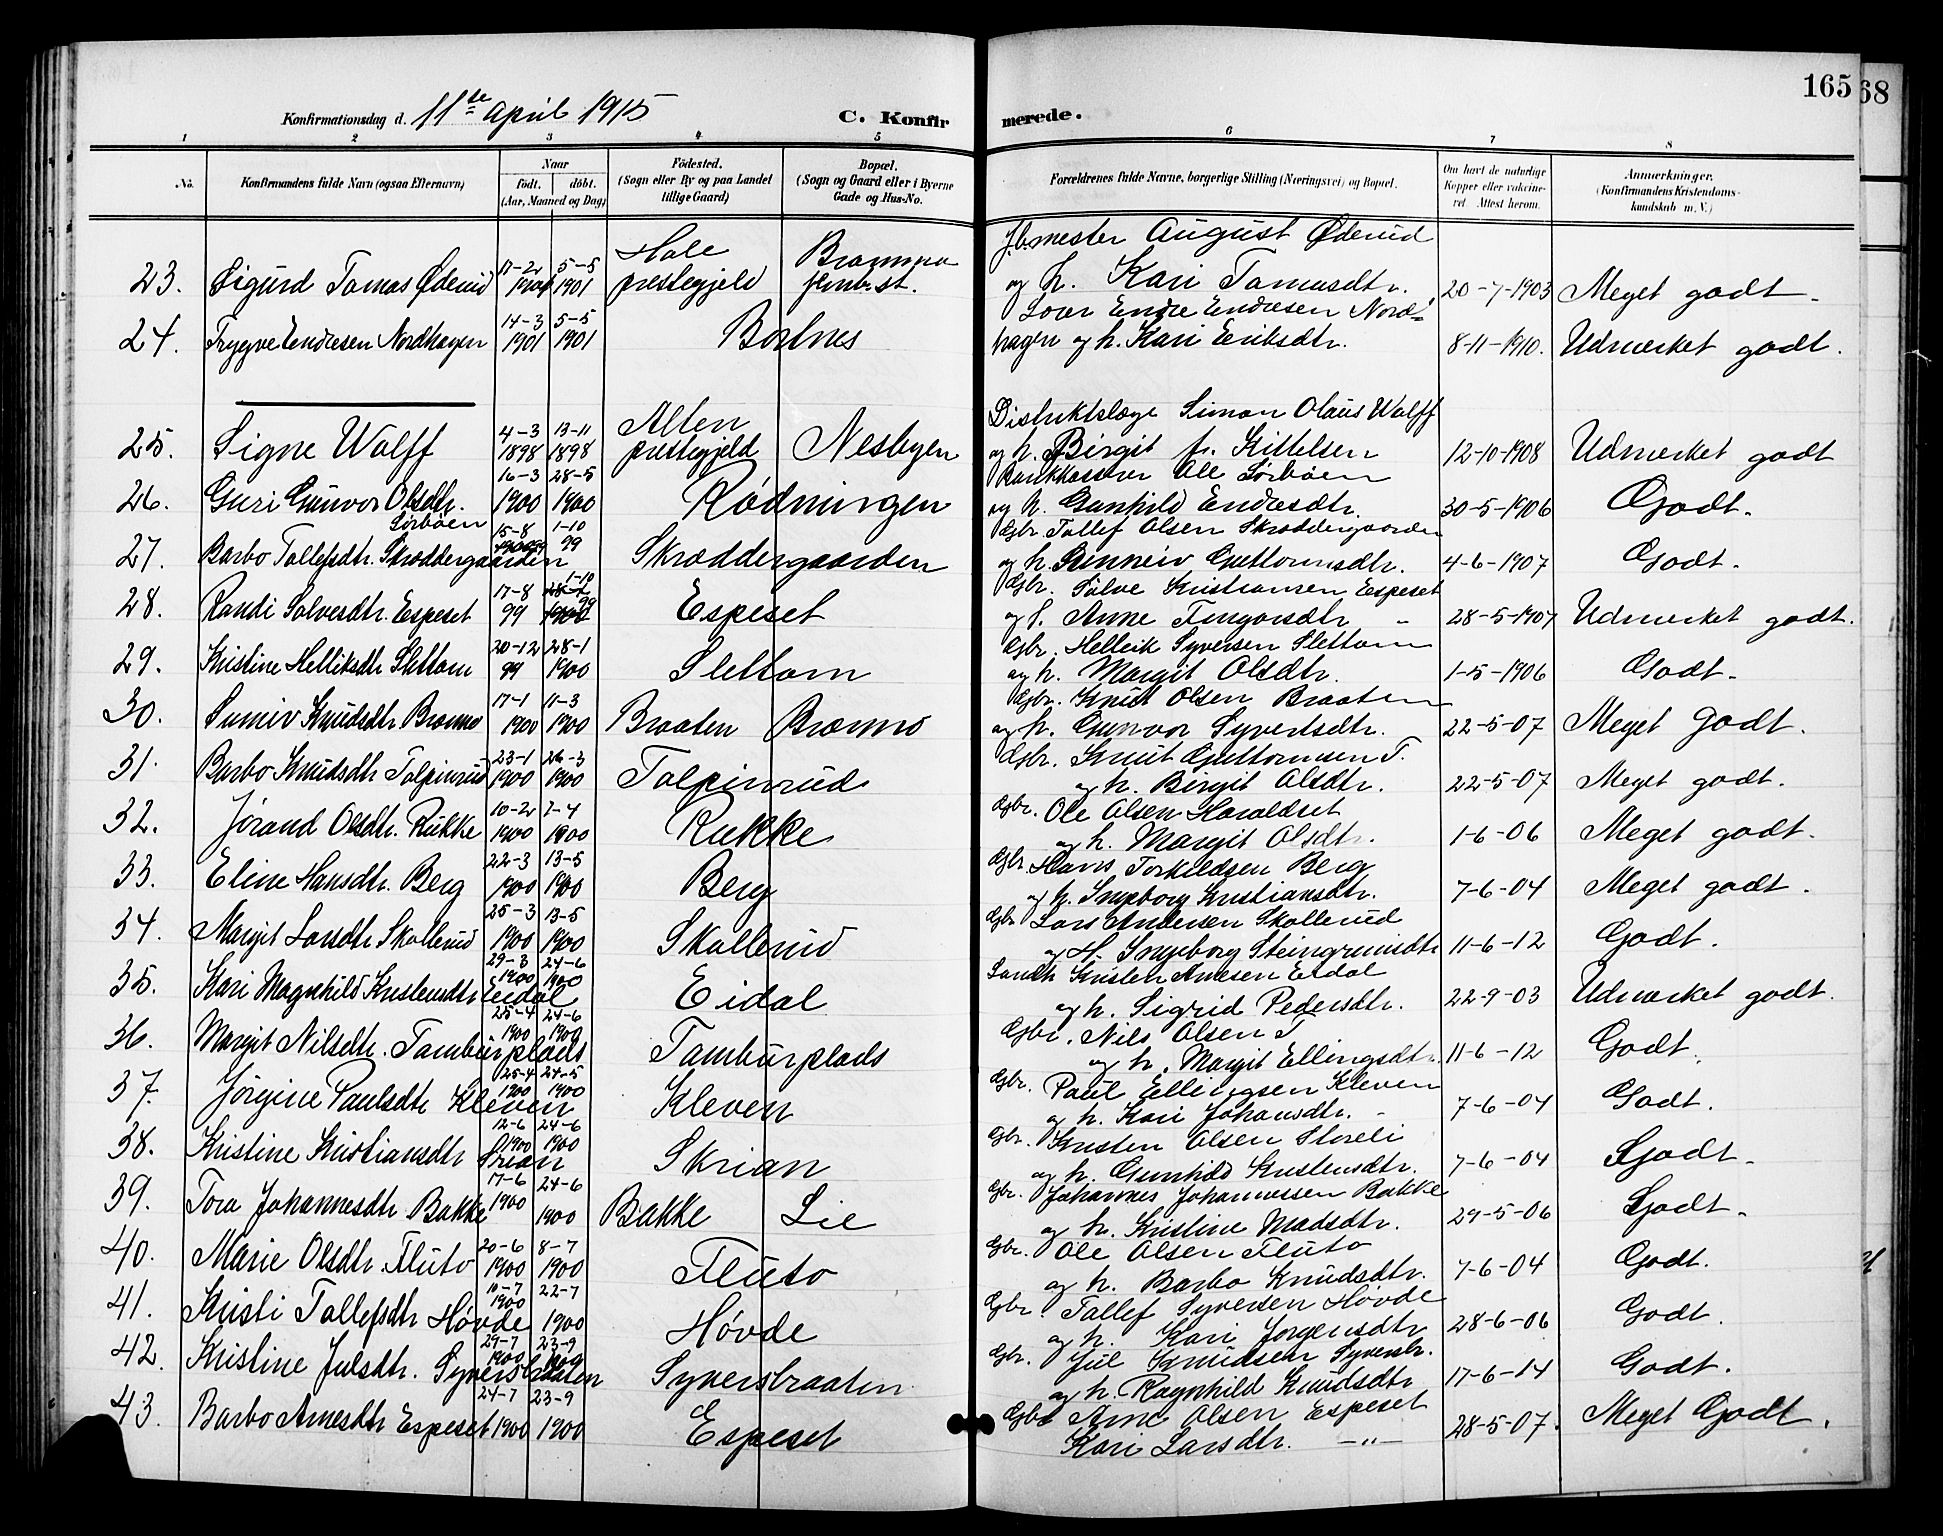 165
68
Konfirmationsdag d. 11te april 1915
C. Konfirmerede.
1 2 3 4 5 6 7 8
No. Konfirmandens fulde Navn (ogsaa Efternavn) Naar født. døbt. (Aar, Maaned og Dag) Födested. (Sogn eller By og paa Landet tillige Gaard) Bopæl. (Sogn og Gaard eller i Byerne Gade og Hus-No. Forældrenes fulde Navne, borgerlige Stilling (Næringsvei) og Bopæl. Om havt de naturlige Kopper eller vakcineret. Attest herom. Anmerkninger. (Konfirmandens Kristendomskundskab m. V.)
23. Sigurd Tomas Øderud 17-2 1901 5-5 1901 Hole prestegjeld Bromma jernb.st. Jb.mester August Øderud og h. Kari Tomasdtr. 20-7-1903 Meget godt.
24. Trygve Endresen Nordhagen 14-3 1901 5-5 1901 Bortnes Endre Endresen Nordhagen og h. Kari Eriksdtr. 8-11-1910. Udmerket godt.
25. Signe Wolff 4-3 1898 13-11 1898 Alten prestegjeld Nesbyen Distriktslæge Simon Olaus Wolff og h. Birgit f. Kittelsen 12-10-1908 Udmerket godt
26. Guri Gunvor Olsdtr. Sørbøen 16-3 1900 28-5 1900 Rødningen Bankkasserer Ole Sørbøen og h. Gunhild Endresdtr. 30-5-1906 Godt.
27. Barbo Tollefsdtr. Skræddergaarden 15-8 99 1-10 99 Skræddergaarden Gbr. Tollef Olsen Skræddergaarden og h. Gunneiv Guttormsdtr. 4-6-1907 Godt.
28. Randi Solvesdtr. Espeset 17-8 99 1-10 99 Espeset Gbr. Sølve Kristiansen Espeset og h. Anne Fingarsdtr - 28-5-1907 Udmerket godt.
29. Kristine Helliksdtr Slettom 20-12 99 28-1 1900 Slettom Gbr. Hellik Syversen Slettom og h. Margit Olsdtr. 1-5-1906 Godt.
30. Sunniv Knudsdtr Bromma 17-1 1900 11-3 1900 Braaten Bromma Gbr. Knut Olsen Braaten og h. Gunvor Syvertsdtr. 22-5-07 Meget Godt.
31. Barbo Knudsdtr Tolpinrud 23-1 1900 26-3 1900 Tolpinrud Gbr. Knut Guttormsen T. og h. Birgit Olsdtr. 22-5-07 Meget godt.
32. Jørand Olsdtr. Rukke 10-2 1900 7-4 1900 Rukke Gbr. Ole Olsen Haraldset og h. Margit Olsdtr. 1-6-06 Meget godt.
33. Eline Hansdtr. Berg 22-3 1900 13-5 1900 Berg Gbr. Hans Torkildsen Berg og h. Ingeborg Kristiansdtr. 7-6-04 Meget godt.
34. Margit Larsdtr Skollerud 25-3 1900 13-5 1900 Skollerud Gbr. Lars Andersen Skollerud og H. Ingeborg Steingrimsdtr 11-6-12 Godt.
35. Kari Magnhild Kristensdtr Eidal 29-3 1900 24-6 1900 Eidal Kristen Arnesen Eidal og h. Sigrid Pedersdtr. 22-9-03 Udmerket godt.
36. Margit Nilsdtr. Tamburplads 25-4 1900 24-6 1900 Tamburplads Gbr. Nils Olsen T og h. Margit Ellingsdtr. 11-6-12 Godt.
37. Jørgine Paulsdtr Kleven 25-4 1900 24-5 1900 Kleven Gbr. Paul Ellingsen Kleven og h. Kari Johansdtr. - 7-6-04 Godt.
38. Kristine Kristiansdtr Skrian 12-6 1900 24-6 1900 Skrian Gbr. Kristen Olsen Storeli og h. Gunhild Kristensdtr. 7-6-04 Godt.
39. Tora Johannesdtr Bakke 17-6 1900 24-6 1900 Bakke Lie Gbr. Johannes Johannessen Bakke og h. Kristine Madsdtr. 29-5-06 Godt.
40. Marie Olsdtr. Fluto 20-6 1900 8-7 1900 Fluto Gbr. Ole Olsen Fluto og h. Barbo Knudsdtr. 7-6-04 Godt.
41. Kristi Tollefsdtr Høvde 10-7 1900 22-7 1900 Høvde Gbr. Tollef Syversen Høvde og h. Kari Jørgensdtr 28-6-06 Godt.
42. Kristine Julsdtr. Syversbraaten 29-7 1900 23-9 1900 Syversbraaten Gbr. Jul Knudsen Syversbr. og h. Ragnhild Knudsdtr 17-6-14 Godt.
43. Barbo Arnesdtr Espeset 24-7 1900 23-9 1900 Espeset Gbr Arne Olsen Espeset Kari Larsdtr. -"- 28-5-07. Meget Godt.